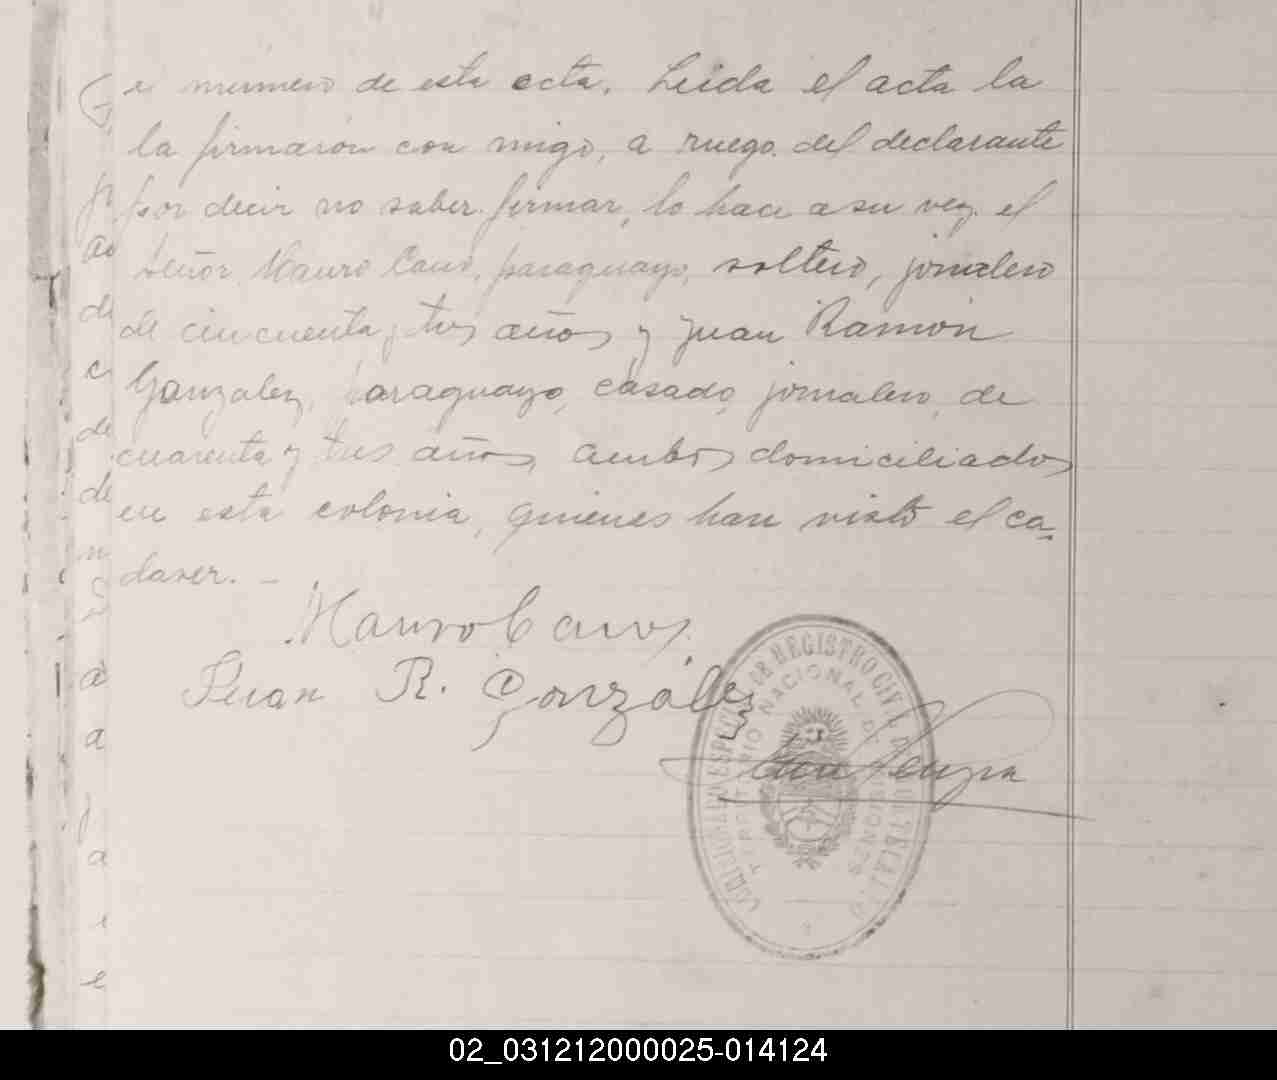 el numero de esta acta. Leida el acta la
la firmaron con migo, a ruego del declarante
por decir no saber firmar, lo hace a su vez el
señor Mauro Cano, paraguayo, soltero, jornalero
de cincuenta y tres años y Juan Ramón
Gonzalez, paraguayo, casado, jornalero, de
cuarenta y tres años, ambos domiciliados
en esta colonia, quienes han visto el ca-
daver. -
Mauro Cano
Juan R. González
REGISTRO CIVIL
TERRITORIO NACIONAL DE MISIONES
02_031212000025-014124